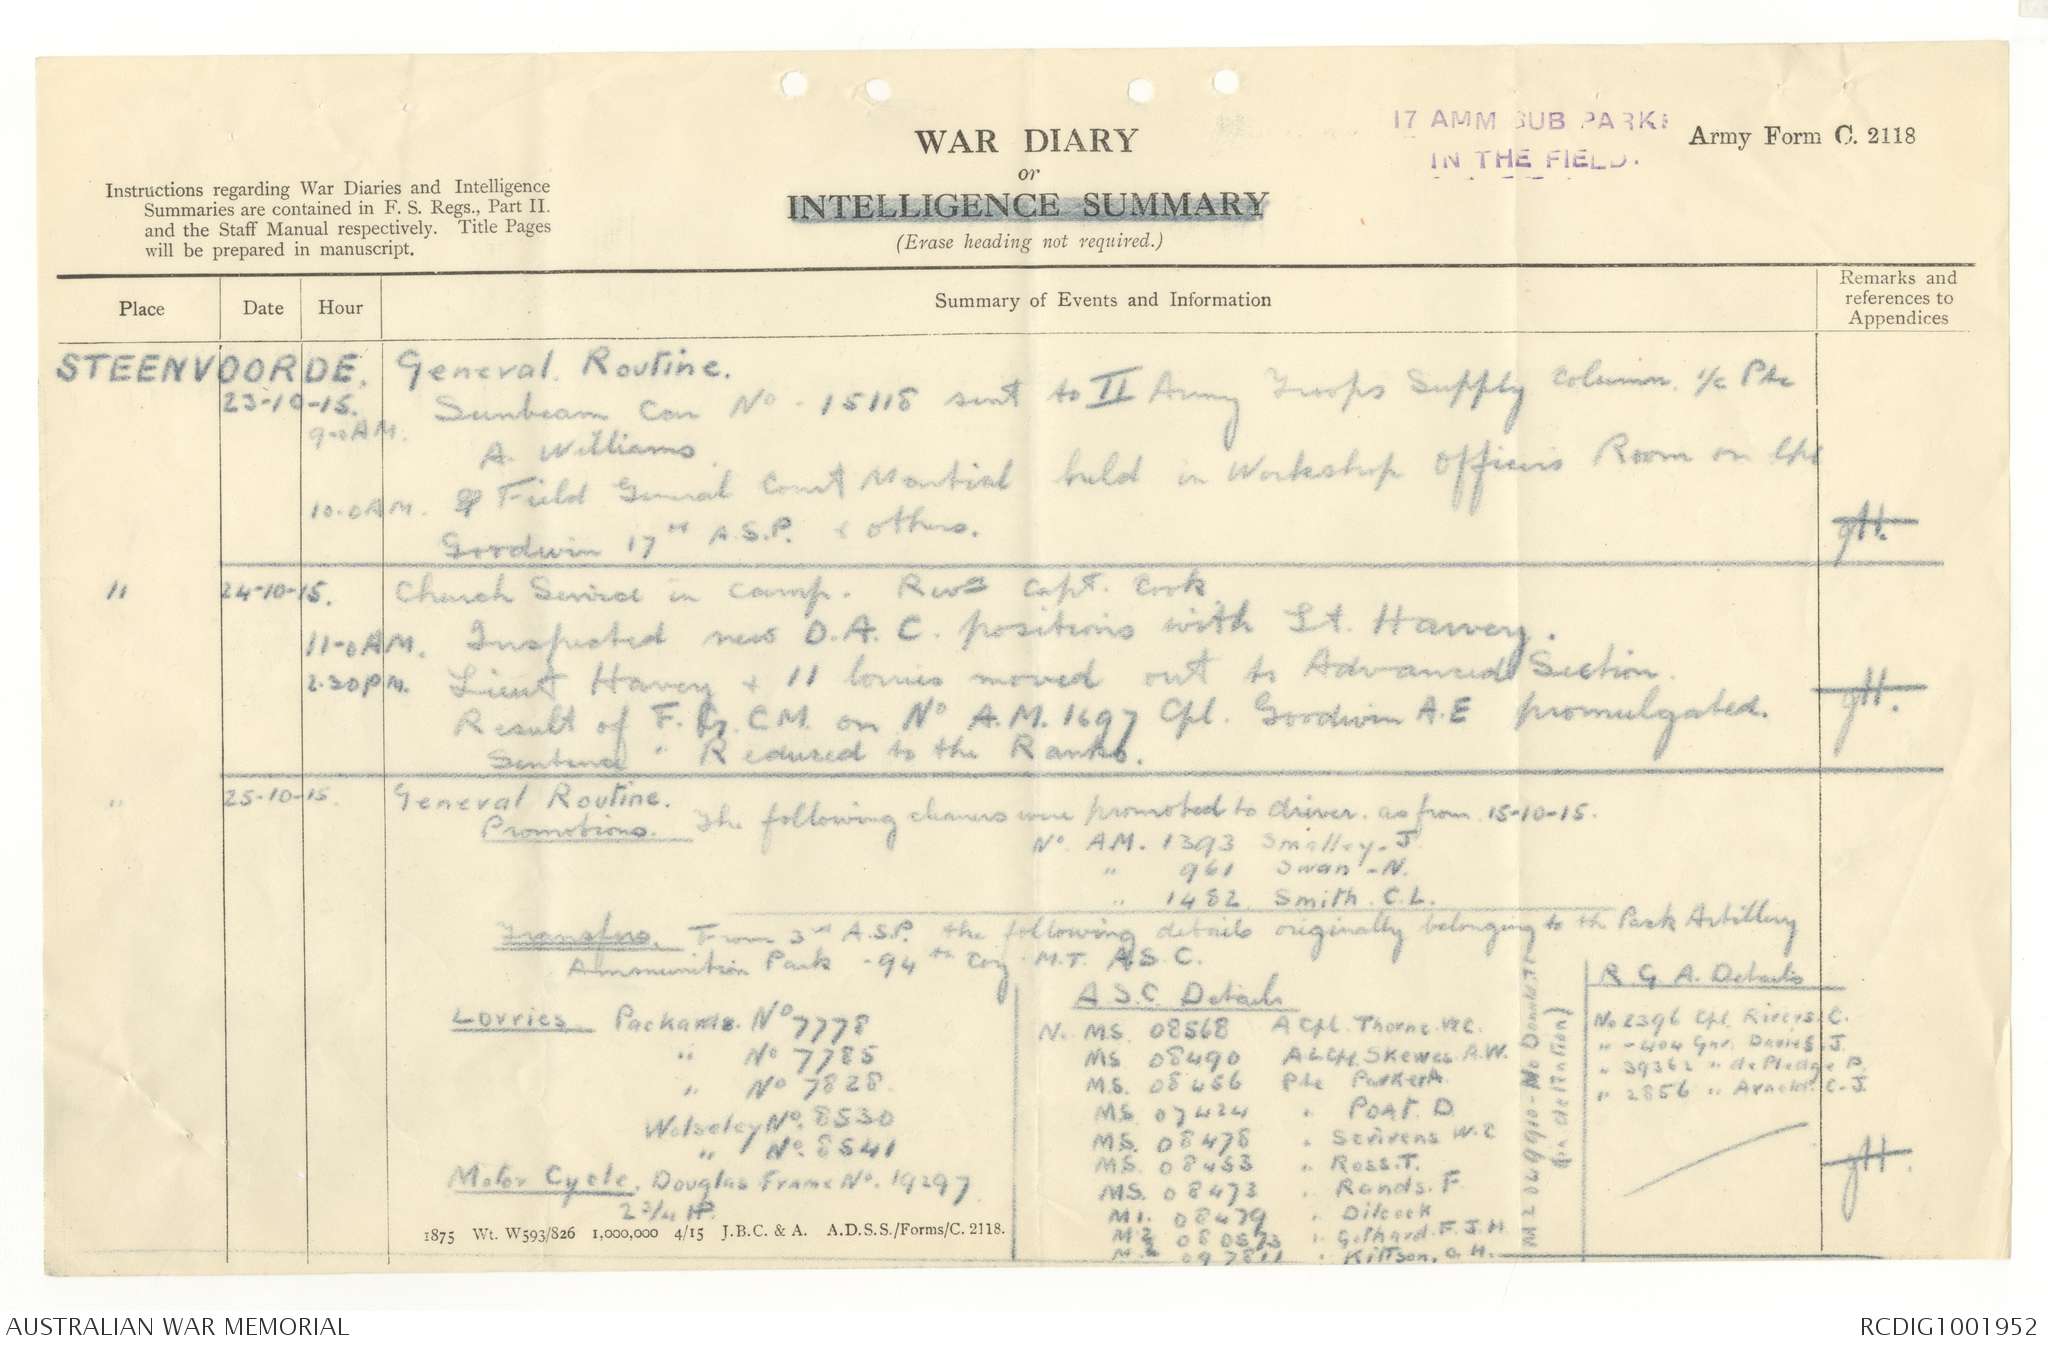 17 AMM SUB PARK
IN THE FIELD.
Army Form C. 2118
WAR DIARY
or
INTELLIGENCE SUMMARY
(Erase heading not required.)
Instructions regarding War Diaries and Intelligence
Summaries are contained in F. S. Regs., Part II.
and the Staff Manual respectively. Title Pages
will be prepared in manuscript.
Place Date Hour Summary of Events and Information Remarks and references to Appendices
STEENVOORDE. General Routine.
23-10-15.
9-0AM. Sunbeam Car No - 15118 sent to II Army Troops Supply Column. i/c Pte
A. Williams.
10.0AM. Field General Court Martial held in Workshop Officers Room on Cpl
Goodwin 17th A.S.P. & others.
" 24-10-15. Church Service in camp. Capt. Cook
11-0AM. Inspected new D.A.C. positions with Lt. Harvey.
2.30PM. Lieut Harvey + 11 lorries moved out to Advanced Section.
Result of F.G.C.M. on No A.M. 1697 Cpl. Goodwin A.E promulgated.
Sentence " Reduced to the Ranks.
" 25-10-15. General Routine.
Promotions. The following cleaners were promoted to driver. as from 15-10-15.
No. AM. 1393 Smalley. J
" 961 Swan - N.
" 1482 Smith. C.L.
Transfers. From 3rd A.S.P. the following details originally belonging to the Park Artillery
Ammunition Park - 94th Coy. M.T. A.S.C.
Lorries Packards. No 7778
" No 7785
" No 7828
Wolseley No. 8530
" No. 8541
Motor Cycle. Douglas Frame No. 19297
2 3/4 HP.
A.S.C. Details
No. MS. 08568 A Cpl. Thorne. W.C.
MS 08490 Skewes. A.W.
MS. 08456 Pte Parker A.
MS. 07424 " Poat. D
MS. 08478 " Scrivens W.E
MS. 08453 " Ross. T.
MS. 08473 " Rands. F
M1. 08479 " Dilcock
M2 080573 " Gothard. F.J.H.
M2 097811 " Kittson. G.H.
(in detention)
R.G.A. Details
No 2396 Cpl. Rivers. C.
" - 404 Gnr. Davies. J.
" 39362 " de Pledge P.
" 2856 " Arnold. C-J.
1875 Wt. W593/826 1,000,000 4/15 J.B.C. & A. A.D.S.S./Forms/C. 2118.
AUSTRALIAN WAR MEMORIAL
RCDIG1001952